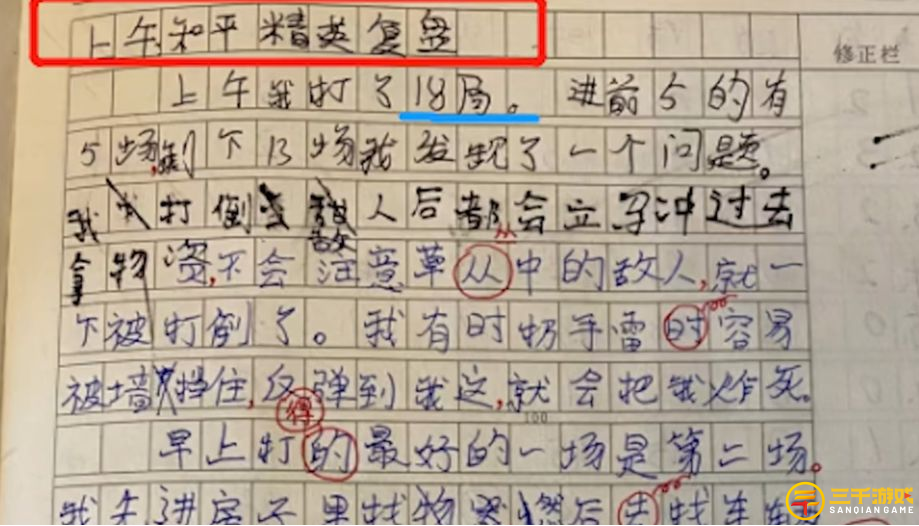 上午和平精英复盘
修正栏
上午我打了18局。进前5的有
5场,剩下13场我发现了一个问题。
我打倒敌人后都会立马冲过去
拿物资,不会注意草从中的敌人,就一
下被打倒了。我有时扔手雷时容易
被墙挡住,反弹到我这,就会把我炸死。
得
100
早上打的最好的一场是第二场。
我先进房子里找物资,然后去找车
三千游戏
SANQIANGAME